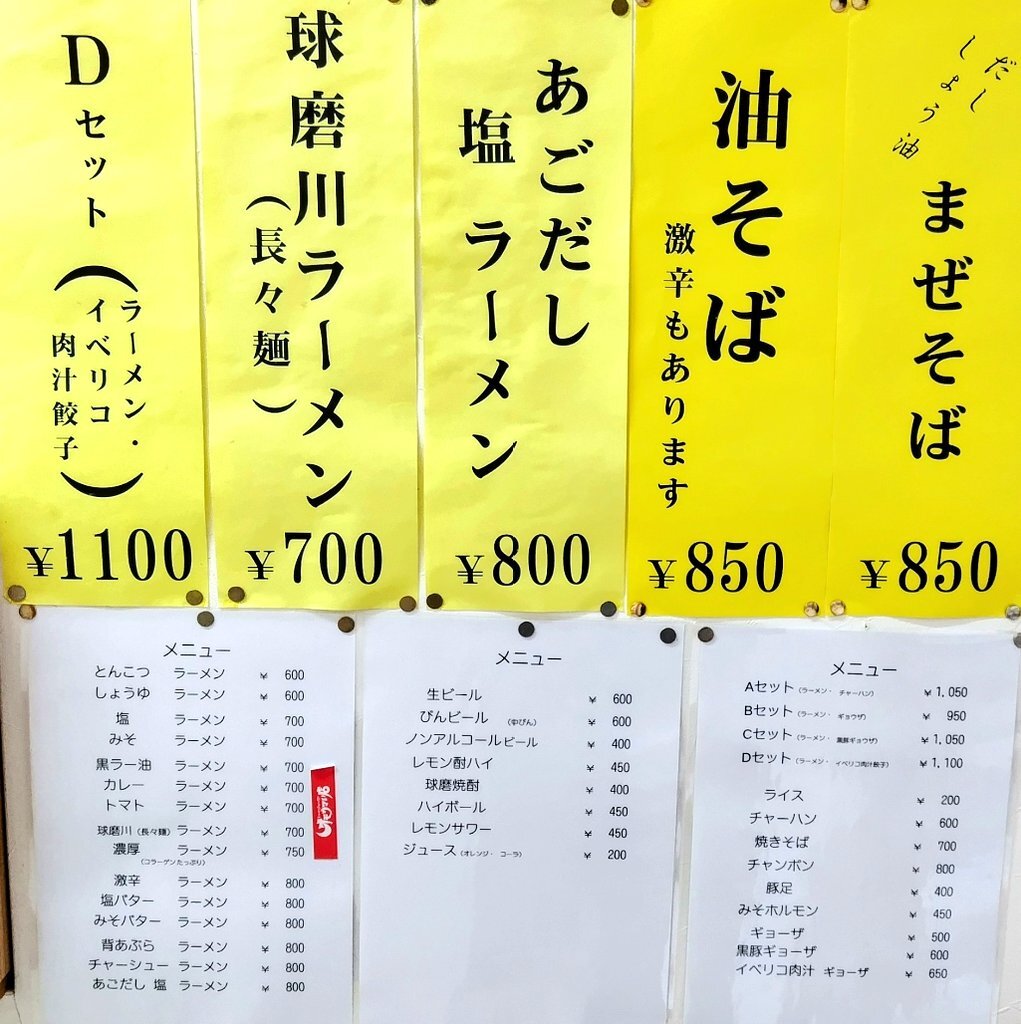 だし
しょう油
まぜそば
¥850
油そば
激辛もあります
¥850
あごだし
塩 ラーメン
¥800
球磨川ラーメン
(長々麺)
¥700
Dセット(
ラーメン・
イベリコ
肉汁餃子)
¥1100
メニュー
とんこつ ラーメン ¥ 600
しょうゆ ラーメン ¥ 600
塩 ラーメン ¥ 700
みそ ラーメン ¥ 700
黒ラー油 ラーメン ¥ 700
カレー ラーメン ¥ 700
トマト ラーメン ¥ 700
球磨川(長々麺) ラーメン ¥ 700
濃厚 ラーメン ¥ 750
(コラーゲンたっぷり)
激辛 ラーメン ¥ 800
塩バター ラーメン ¥ 800
みそバター ラーメン ¥ 800
背あぶら ラーメン ¥ 800
チャーシュー ラーメン ¥ 800
あごだし 塩 ラーメン ¥ 800
メニュー
生ビール ¥ 600
びんビール (中びん) ¥ 600
ノンアルコールビール ¥ 400
レモン酎ハイ ¥ 450
球磨焼酎 ¥ 400
ハイボール ¥ 450
レモンサワー ¥ 450
ジュース(オレンジ・ コーラ) ¥ 200
メニュー
Aセット(ラーメン・ チャーハン) ¥1,050
Bセット(ラーメン・ ギョウザ) ¥ 950
Cセット(ラーメン・ 黒豚ギョウザ) ¥1,050
Dセット(ラーメン・ イベリコ肉汁餃子) ¥1,100
ライス ¥ 200
チャーハン ¥ 600
焼きそば ¥ 700
チャンポン ¥ 800
豚足 ¥ 400
みそホルモン ¥ 450
ギョーザ ¥ 500
黒豚ギョーザ ¥ 600
イベリコ肉汁 ギョーザ ¥ 650